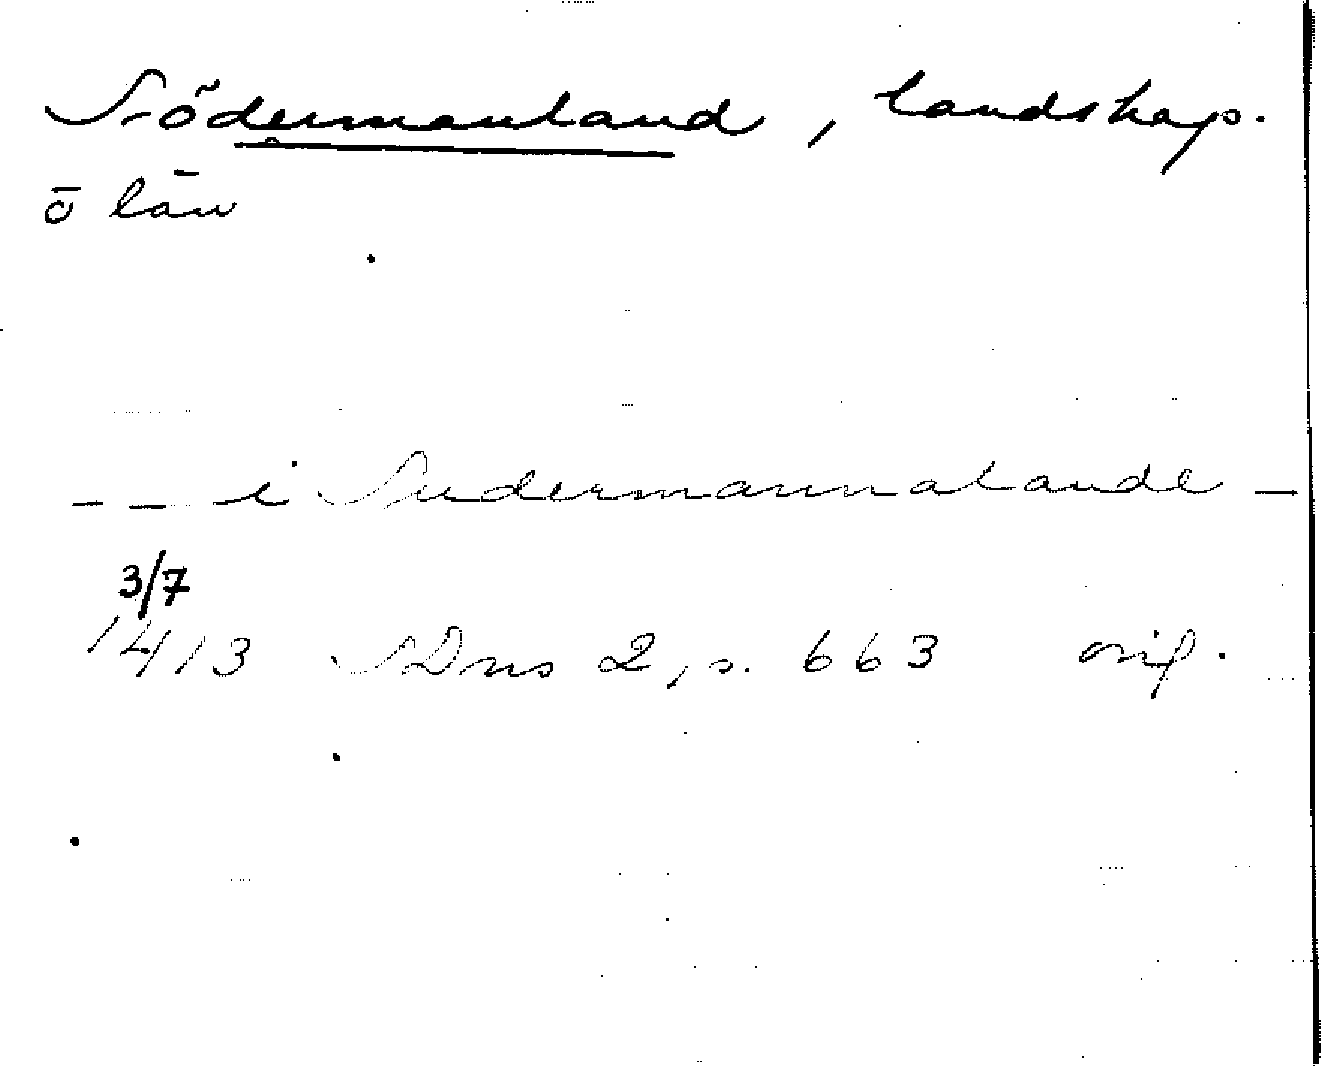 Södermanland, landskap.
ö län
- - i Sudermannalande -
3/7
1413 SDns 2, s. 663 orig.